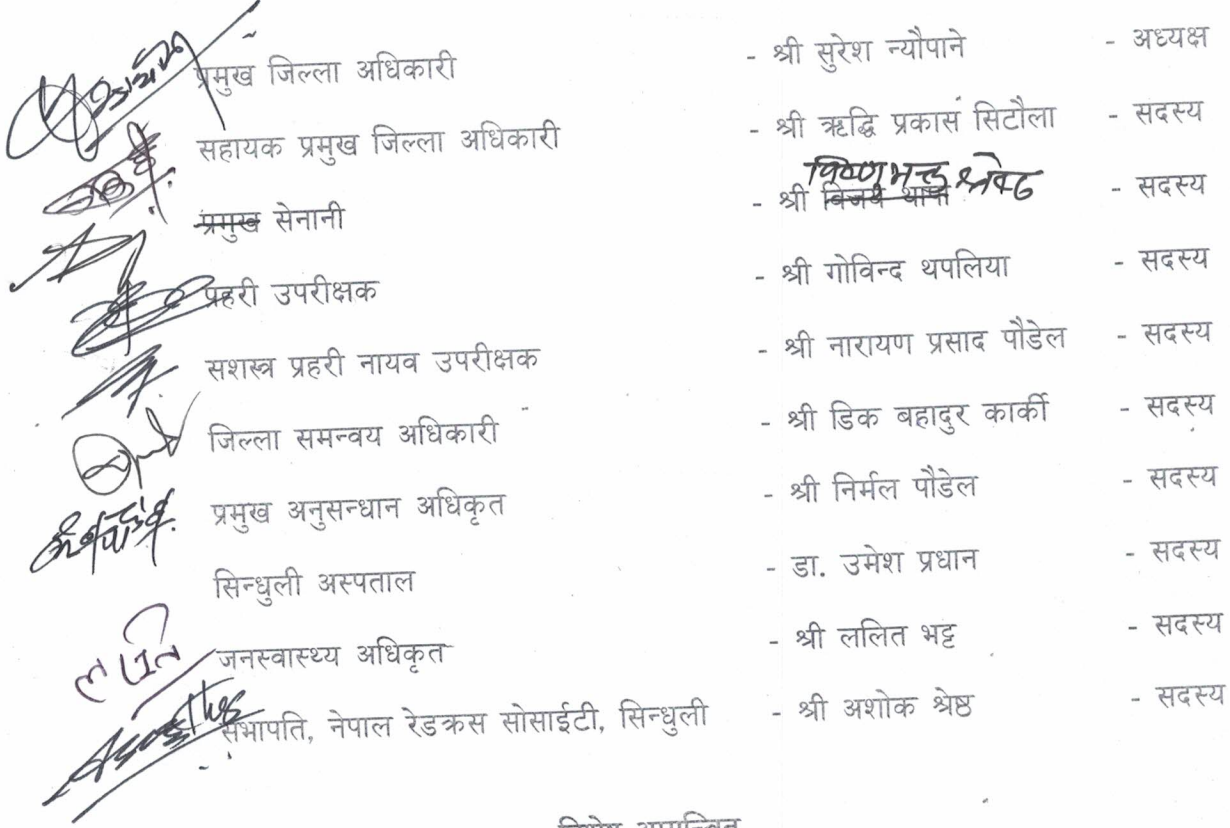 प्रमुख जिल्ला अधिकारी - श्री सुरेश न्यौपाने - अध्यक्ष
सहायक प्रमुख जिल्ला अधिकारी - श्री ऋद्धि प्रकास सिटौला - सदस्य
विष्णु भक्त श्रेष्ठ
प्रमुख सेनानी - श्री विजय थापा - सदस्य
प्रहरी उपरीक्षक - श्री गोविन्द थपलिया - सदस्य
सशस्त्र प्रहरी नायव उपरीक्षक - श्री नारायण प्रसाद पौडेल - सदस्य
जिल्ला समन्वय अधिकारी - श्री डिक बहादुर कार्की - सदस्य
प्रमुख अनुसन्धान अधिकृत - श्री निर्मल पौडेल - सदस्य
सिन्धुली अस्पताल - डा. उमेश प्रधान - सदस्य
ललित जनस्वास्थ्य अधिकृत - श्री ललित भट्ट - सदस्य
सभापति, नेपाल रेडक्रस सोसाईटी, सिन्धुली - श्री अशोक श्रेष्ठ - सदस्य